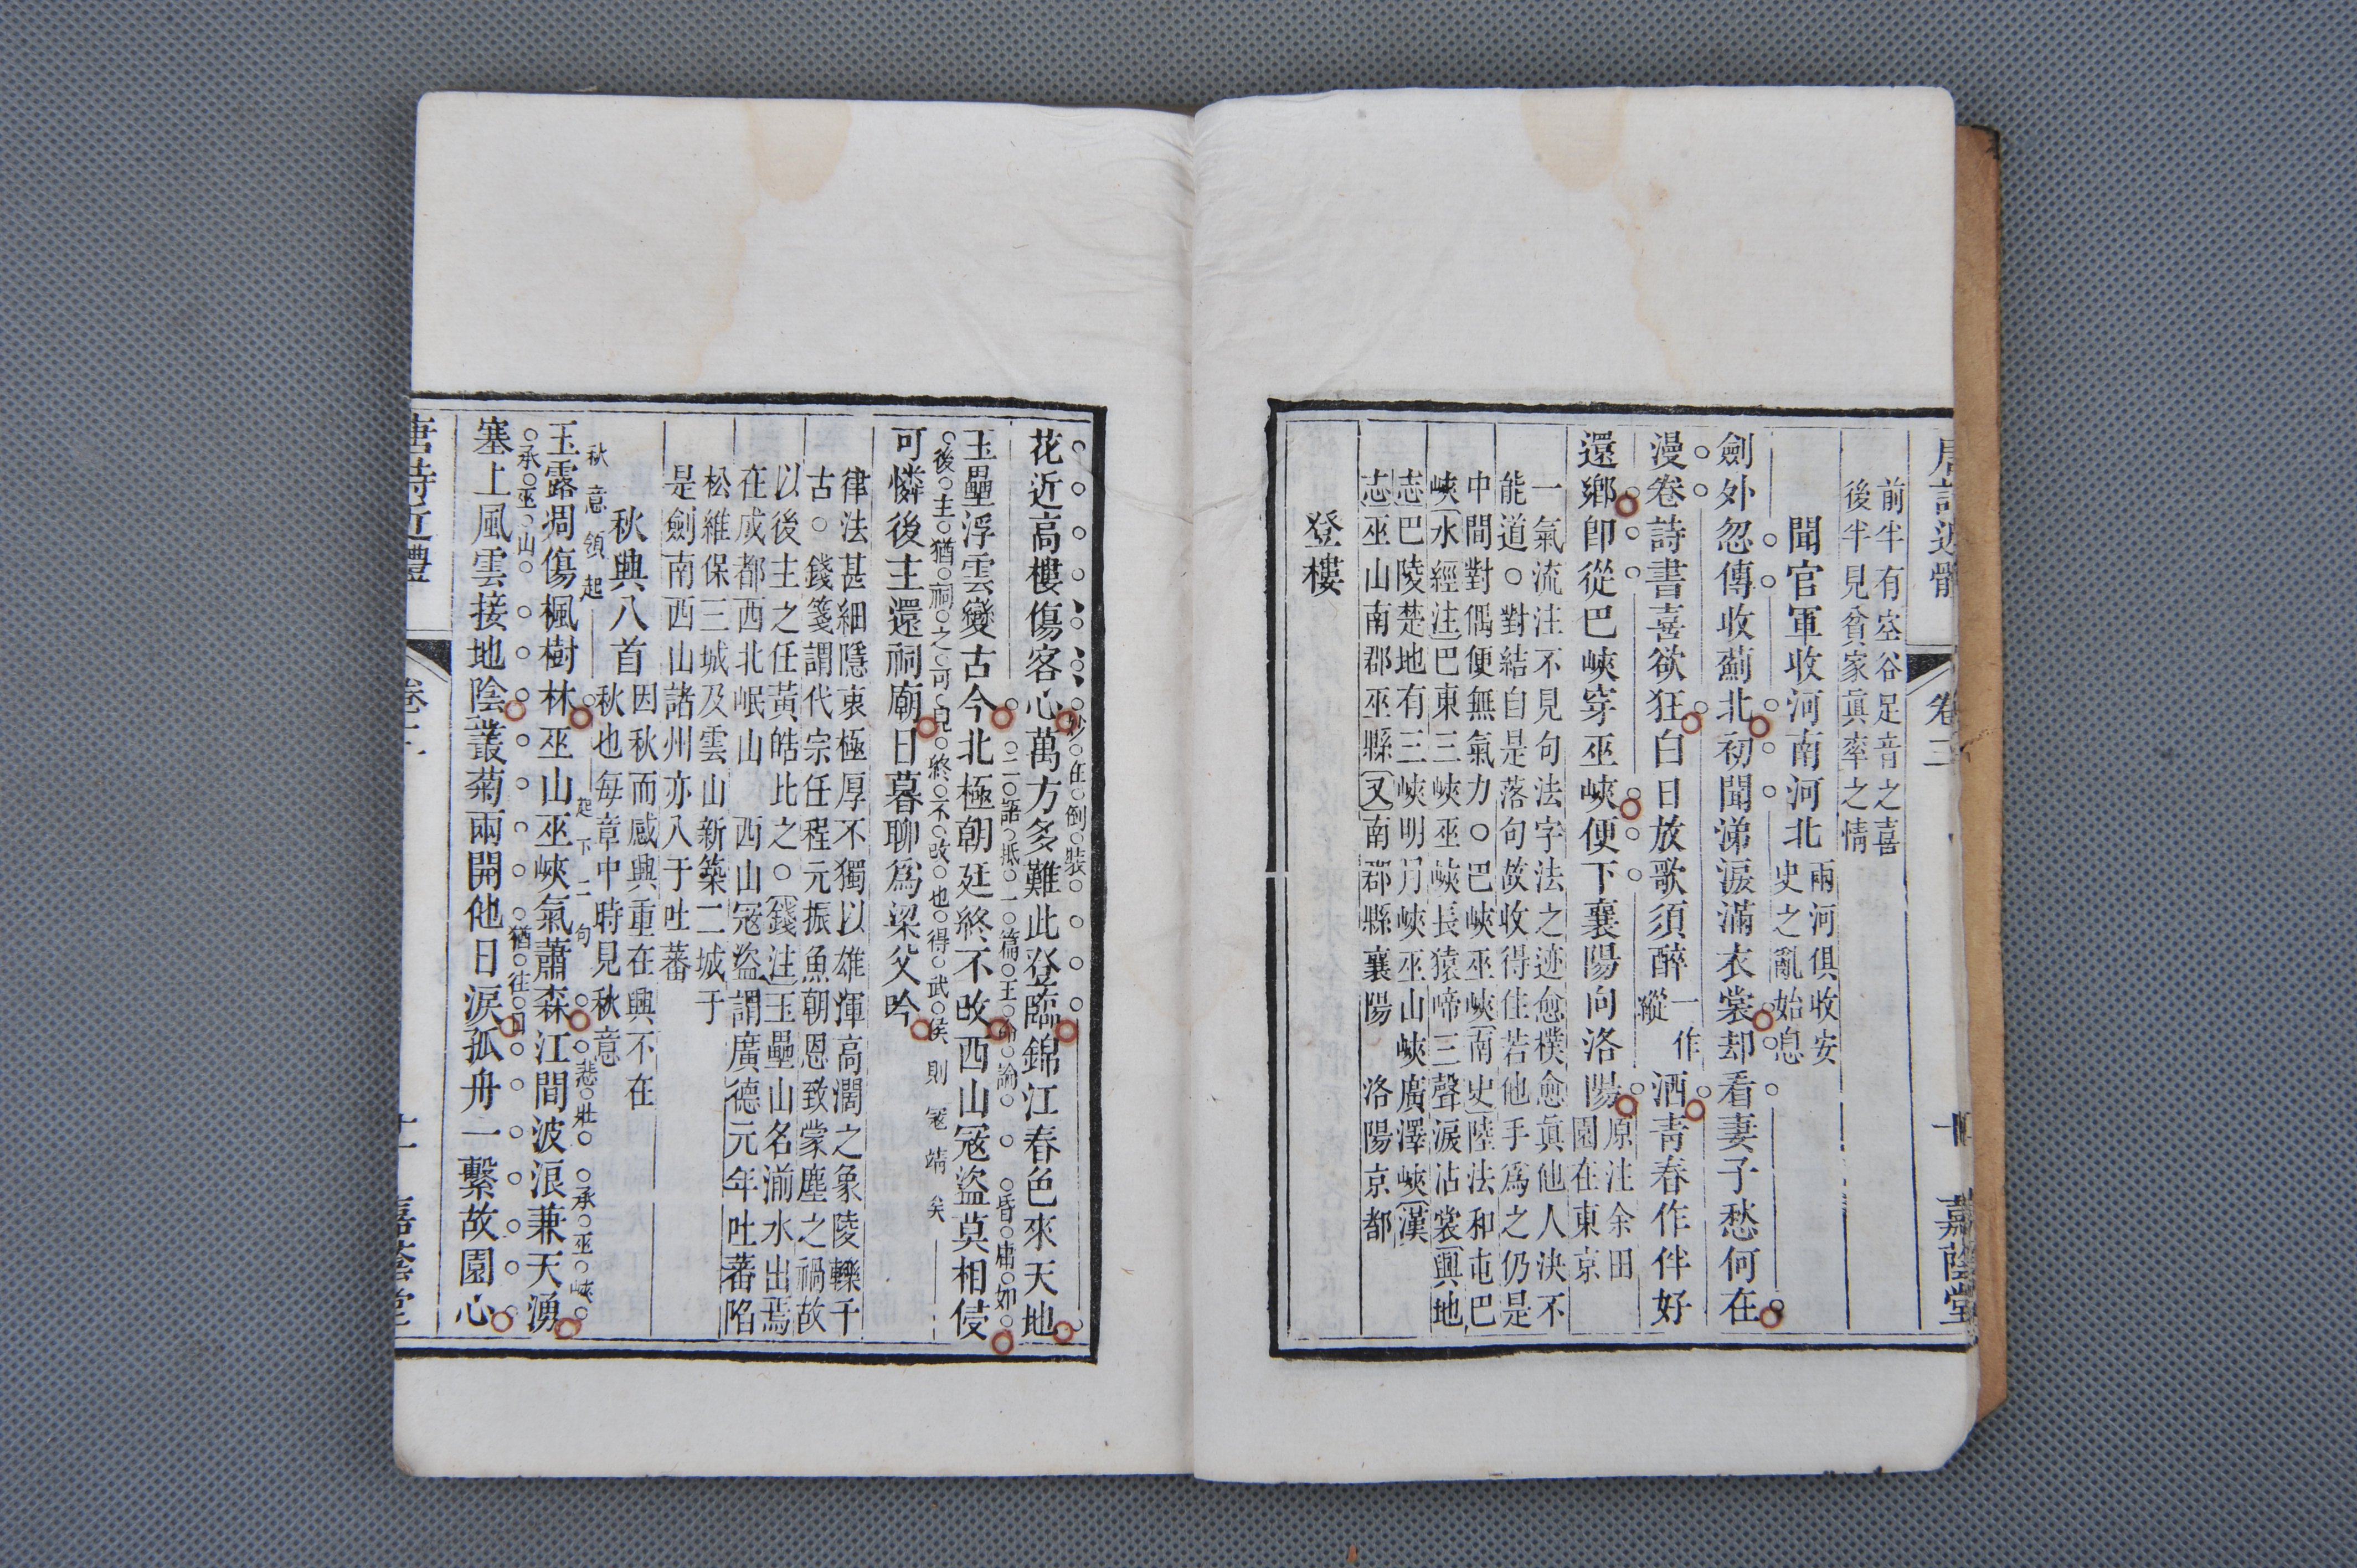 唐詩近體
卷三
嘉蔭堂
前半有空谷足音之喜
後半見貧家眞率之情
聞官軍收河南河北
兩河俱收安
史之亂始息
劍外忽傳收薊北初聞涕淚滿衣裳却看妻子愁何在
漫卷詩書喜欲狂白日放歌須
一作
縱
酒青春作伴好
還鄉卽從巴峽穿巫峽便下襄陽向洛陽
原注余田
園在東京
一氣流注不見句法字法之迹愈樸愈眞他人決不
能道○對結自是落句故收得住若他手爲之仍是
中間對偶便無氣力○巴峽巫峽南史陸法和屯巴
峽水經注巴東三峽巫峽長猿啼三聲淚沾裳輿地
志巴陵楚地有三峽明月峽巫山峽廣澤峽漢
志巫山南郡巫縣又南郡縣襄陽　洛陽京都
登樓
花近高樓傷客心萬方多難此登臨錦江春色來天地
妙在倒裝
玉壘浮雲變古今北極朝廷終不改西山寇盜莫相侵
二語抵一篇王命論
可憐後主還祠廟日暮聊爲梁父吟
後主猶祠之可見終不改也得武侯則寇靖矣
律法甚細隱衷極厚不獨以雄渾高濶之象陵轢千
古○錢箋謂代宗任程元振魚朝恩致蒙塵之禍故
以後主之任黃皓比之○錢注玉壘山名湔水出焉
在成都西北岷山　西山寇盜謂廣德元年吐蕃陷
松維保三城及雲山新築二城于
是劍南西山諸州亦入于吐蕃
秋興八首
因秋而感興重在興不在
秋也每章中時見秋意
秋意領起
起下二句
悲壯
承巫峽
玉露凋傷楓樹林巫山巫峽氣蕭森江間波浪兼天湧
承巫山
猶往日
塞上風雲接地陰叢菊兩開他日淚孤舟一繫故園心
唐詩近體
卷三
十一
嘉蔭堂